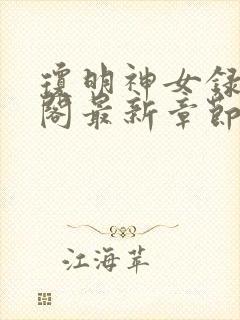 瓊明神女録
閣最新章節
江海苹